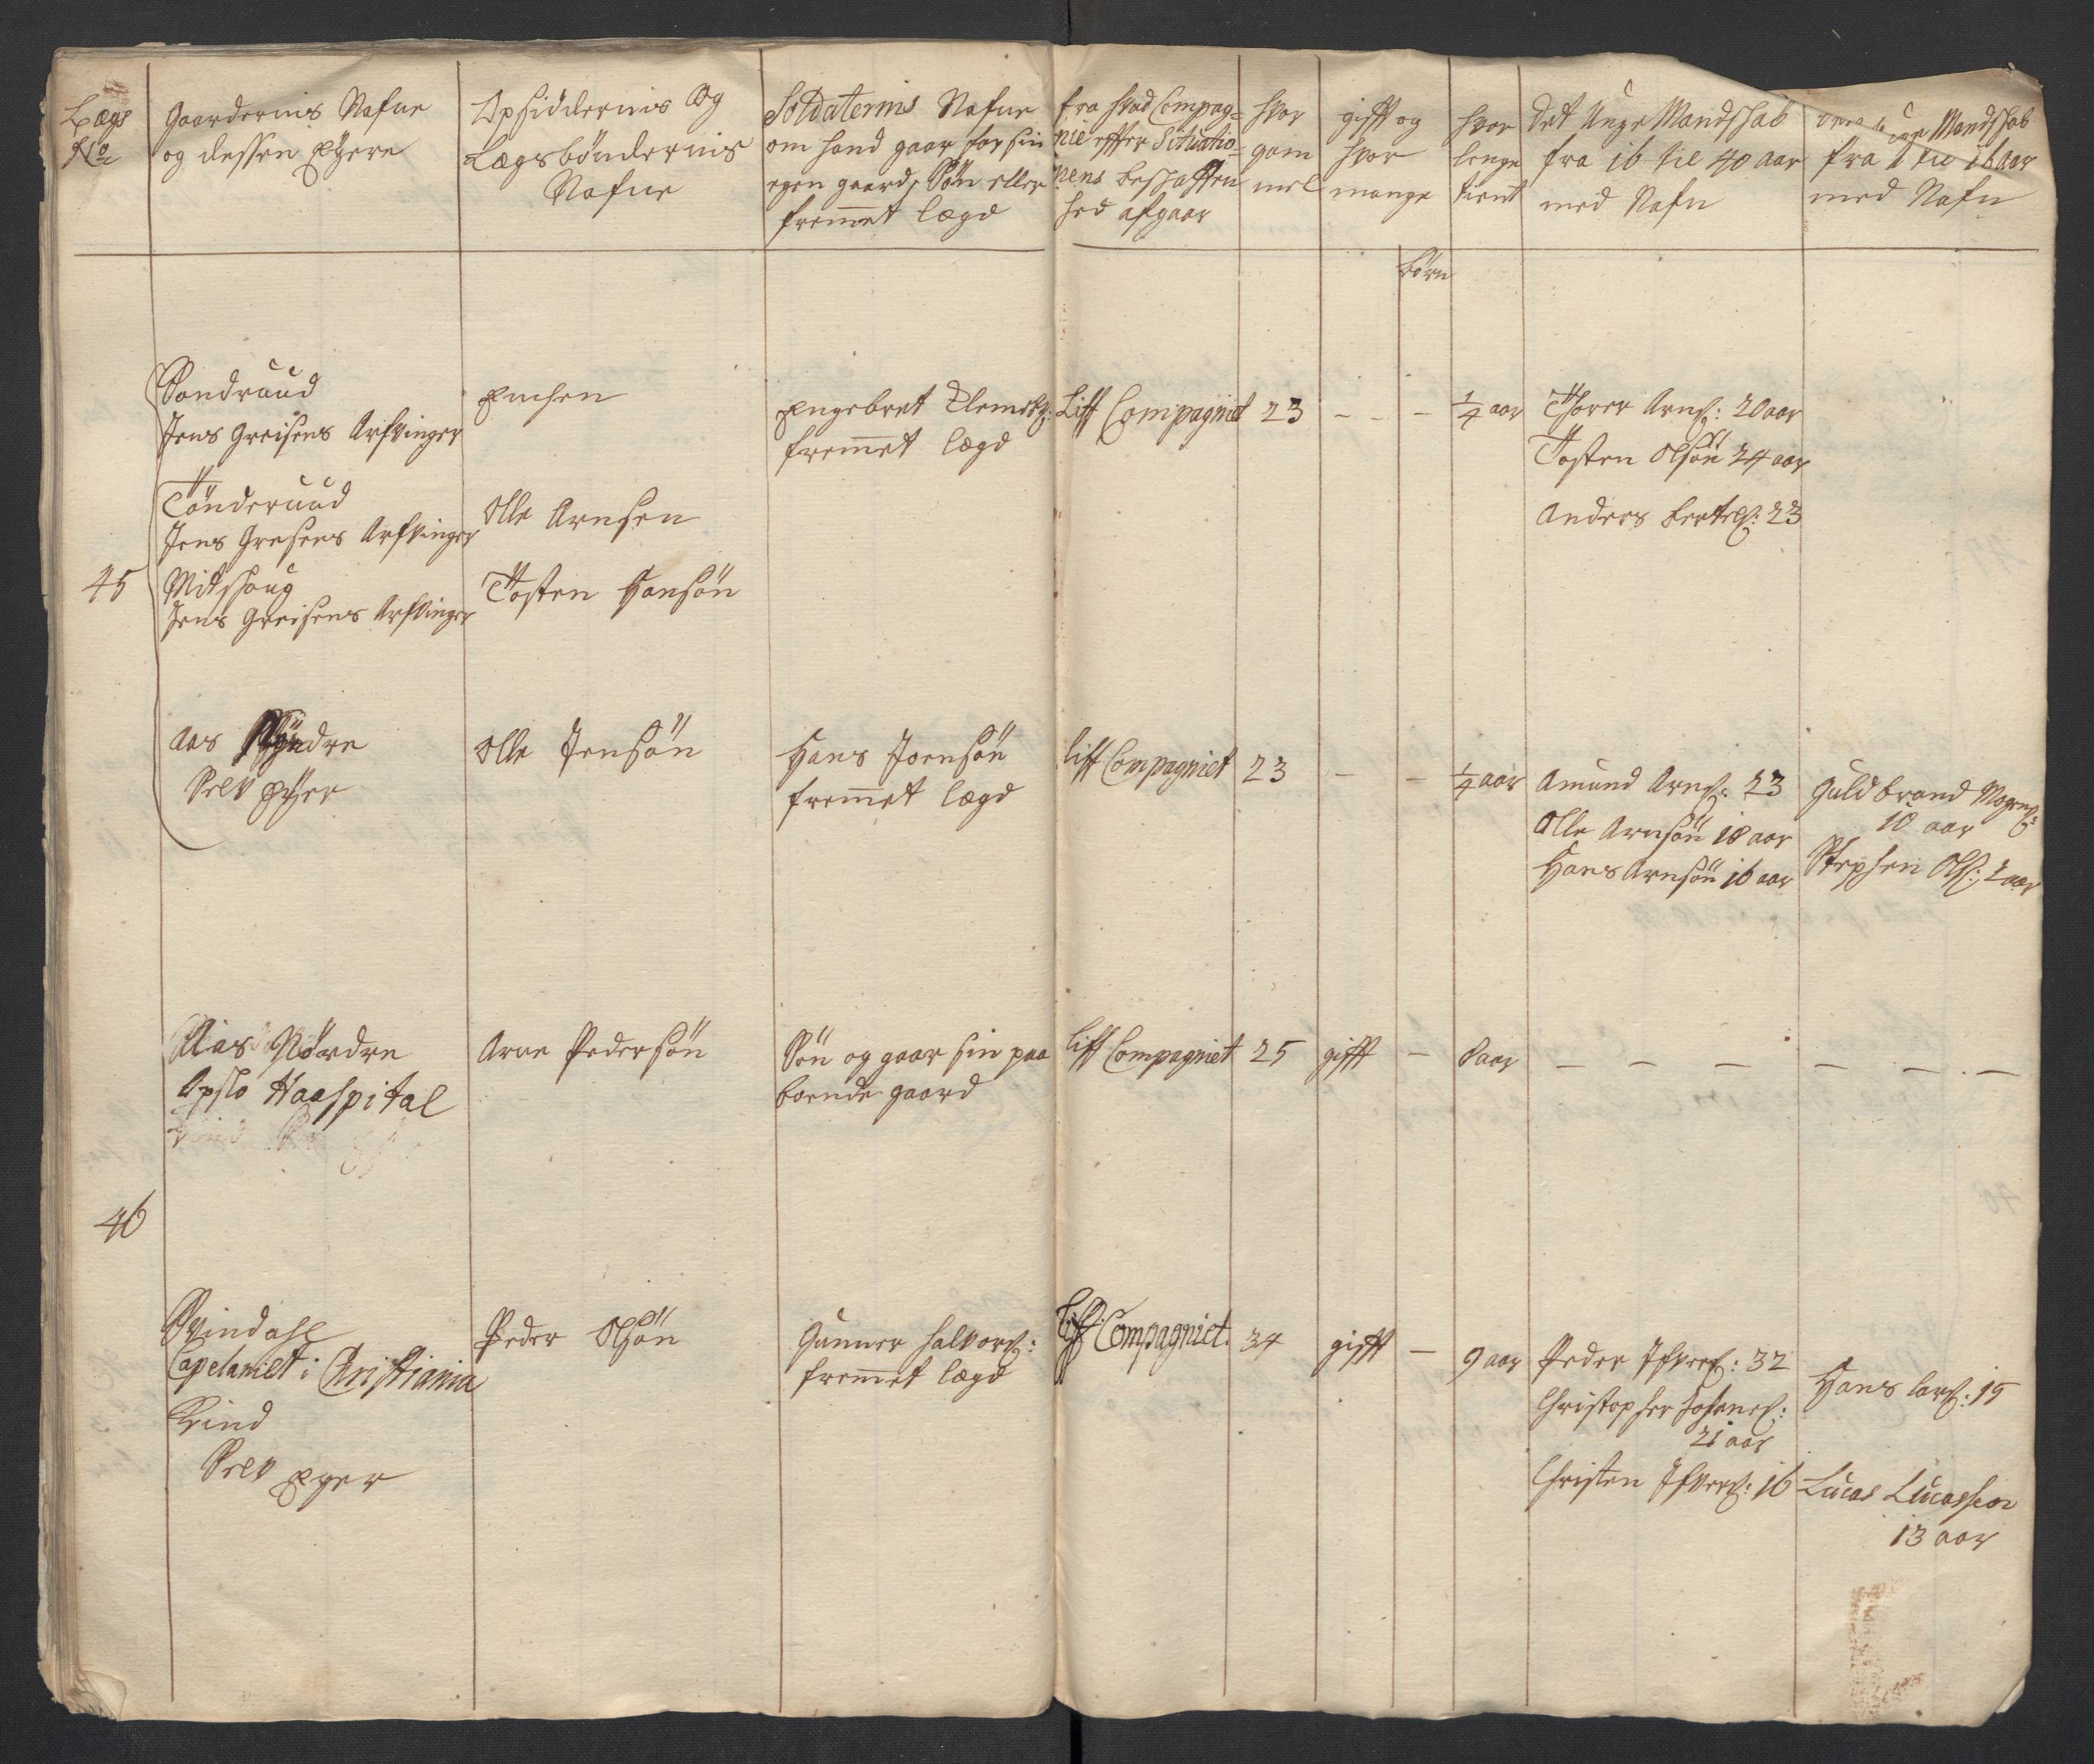 Lægs
No
Gaardernis Nafne
og dessen Eÿere
Opsiddernis Og
Lægsbøndernis
Nafne
Soldaternis Nafne
om hand gaar for sin
egen gaard, Søn eller
fremet lægd
fra hvad Compag-
nie effter Situatio-
nens beschaffen
hed afgaar
hvor
gam
mel
gifft og
hvor
mange
børn
hvor
lenge
tient
det Unge Mandskab
fra 16 til 40 aar
med Nafn
unge Mandskab
fra 1 til 16 aar
med Nafn
45
Sondruud
Jens Greisens Arfvinger
Enchen
Engebret
fremet lægd
Liff Compagniet
23
- - -
1/4 aar
Thorer Arns: 20 aar
Tosten Olsøn 24 aar
Anders Bertels: 23
Tønderuud
Jens Gresens Arfvinger
Olle Arnsen
Mitshoug
Jens Greisens Arfvinger
Tosten Hansøn
Aas Søndre
Selv Eÿer
Olle Jensøn
Hans Joensøn
fremet lægd
liff Compagniet
23
- -
1/4 aar
Amund Arns: 23
Olle Arnsøn 18 aar
Hans Arnsøn 16 aar
Guldbrand Mogens:
10 aar
Stephen Ols: 2 aar
46
Aas Nørdre
Opslo Haaspital
Arne Pedersøn
Søn og gaar sin paa
boende gaard
liff Compagniet
25
gifft
-
8 aar
- - - - - -
Svindahl
Capelaniet i Christiania
Kind
Selv Eyer
Peder Olsøn
Gunner Halvors:
fremet lægd
Liff Compagniet.
34
gifft
-
9 aar
Peder Ifvers: 32
Christopher Johanes:
21 aar
Christen Ifvers: 16
Hans Lars: 15
Lucas Lucassen
13 aar